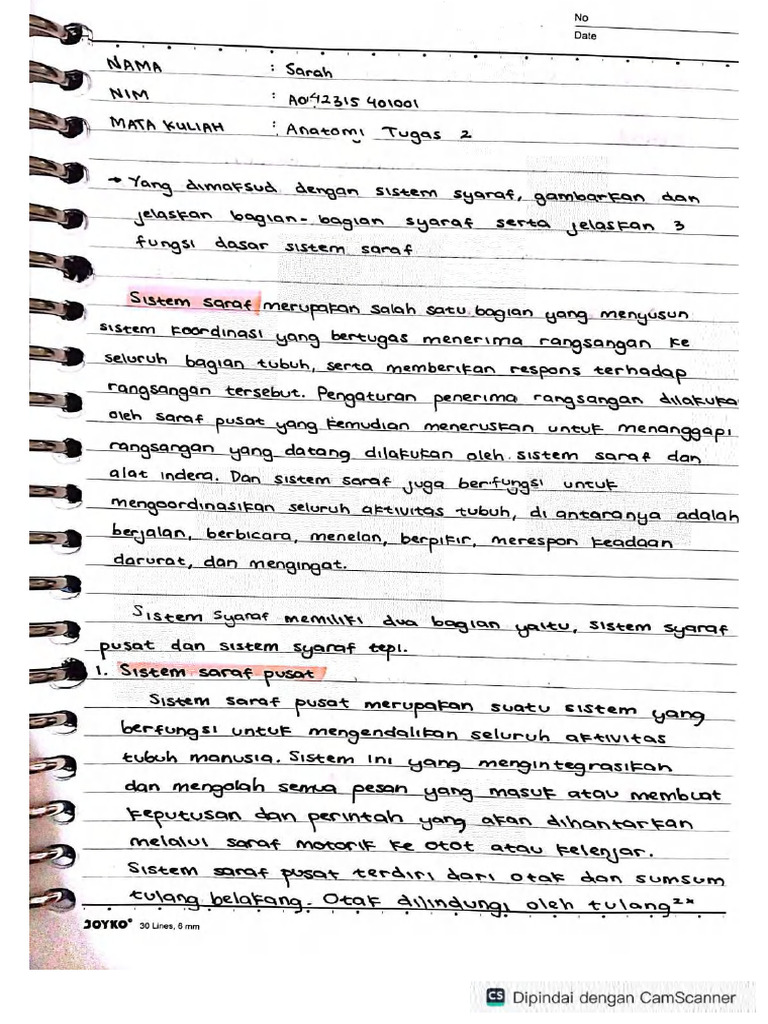 No
Date
NAMA : Sarah
NIM : A042315401001
MATA KULIAH : Anatomi Tugas 2
→ Yang dimaksud dengan sistem syaraf, gambarkan dan
jelaskan bagian-bagian syaraf serta jelaskan 3
fungsi dasar sistem saraf
Sistem saraf merupakan salah satu bagian yang menyusun
sistem koordinasi yang bertugas menerima rangsangan ke
seluruh bagian tubuh, serta memberikan respons terhadap
rangsangan tersebut. Pengaturan penerima rangsangan dilakuka
oleh saraf pusat yang kemudian meneruskan untuk menanggapi
rangsangan yang datang dilakukan oleh sistem saraf dan
alat indera. Dan sistem saraf juga berfungsi untuk
mengoordinasikan seluruh aktivitas tubuh, di antaranya adalah
berjalan, berbicara, menelan, berpikir, merespon keadaan
darurat, dan mengingat.
Sistem syaraf memiliki dua bagian yaitu, sistem syaraf
pusat dan sistem syaraf tepi.
1. Sistem saraf pusat
Sistem saraf pusat merupakan suatu sistem yang
berfungsi untuk mengendalikan seluruh aktivitas
tubuh manusia. Sistem ini yang mengintegrasikan
dan mengolah semua pesan yang masuk atau membuat
keputusan dan perintah yang akan dihantarkan
melalui saraf motorik ke otot atau kelenjar.
Sistem saraf pusat terdiri dari otak dan sumsum
tulang belakang. Otak dilindungi oleh tulang²ˣ
JOYKO® 30 Lines, 6 mm
CS Dipindai dengan CamScanner